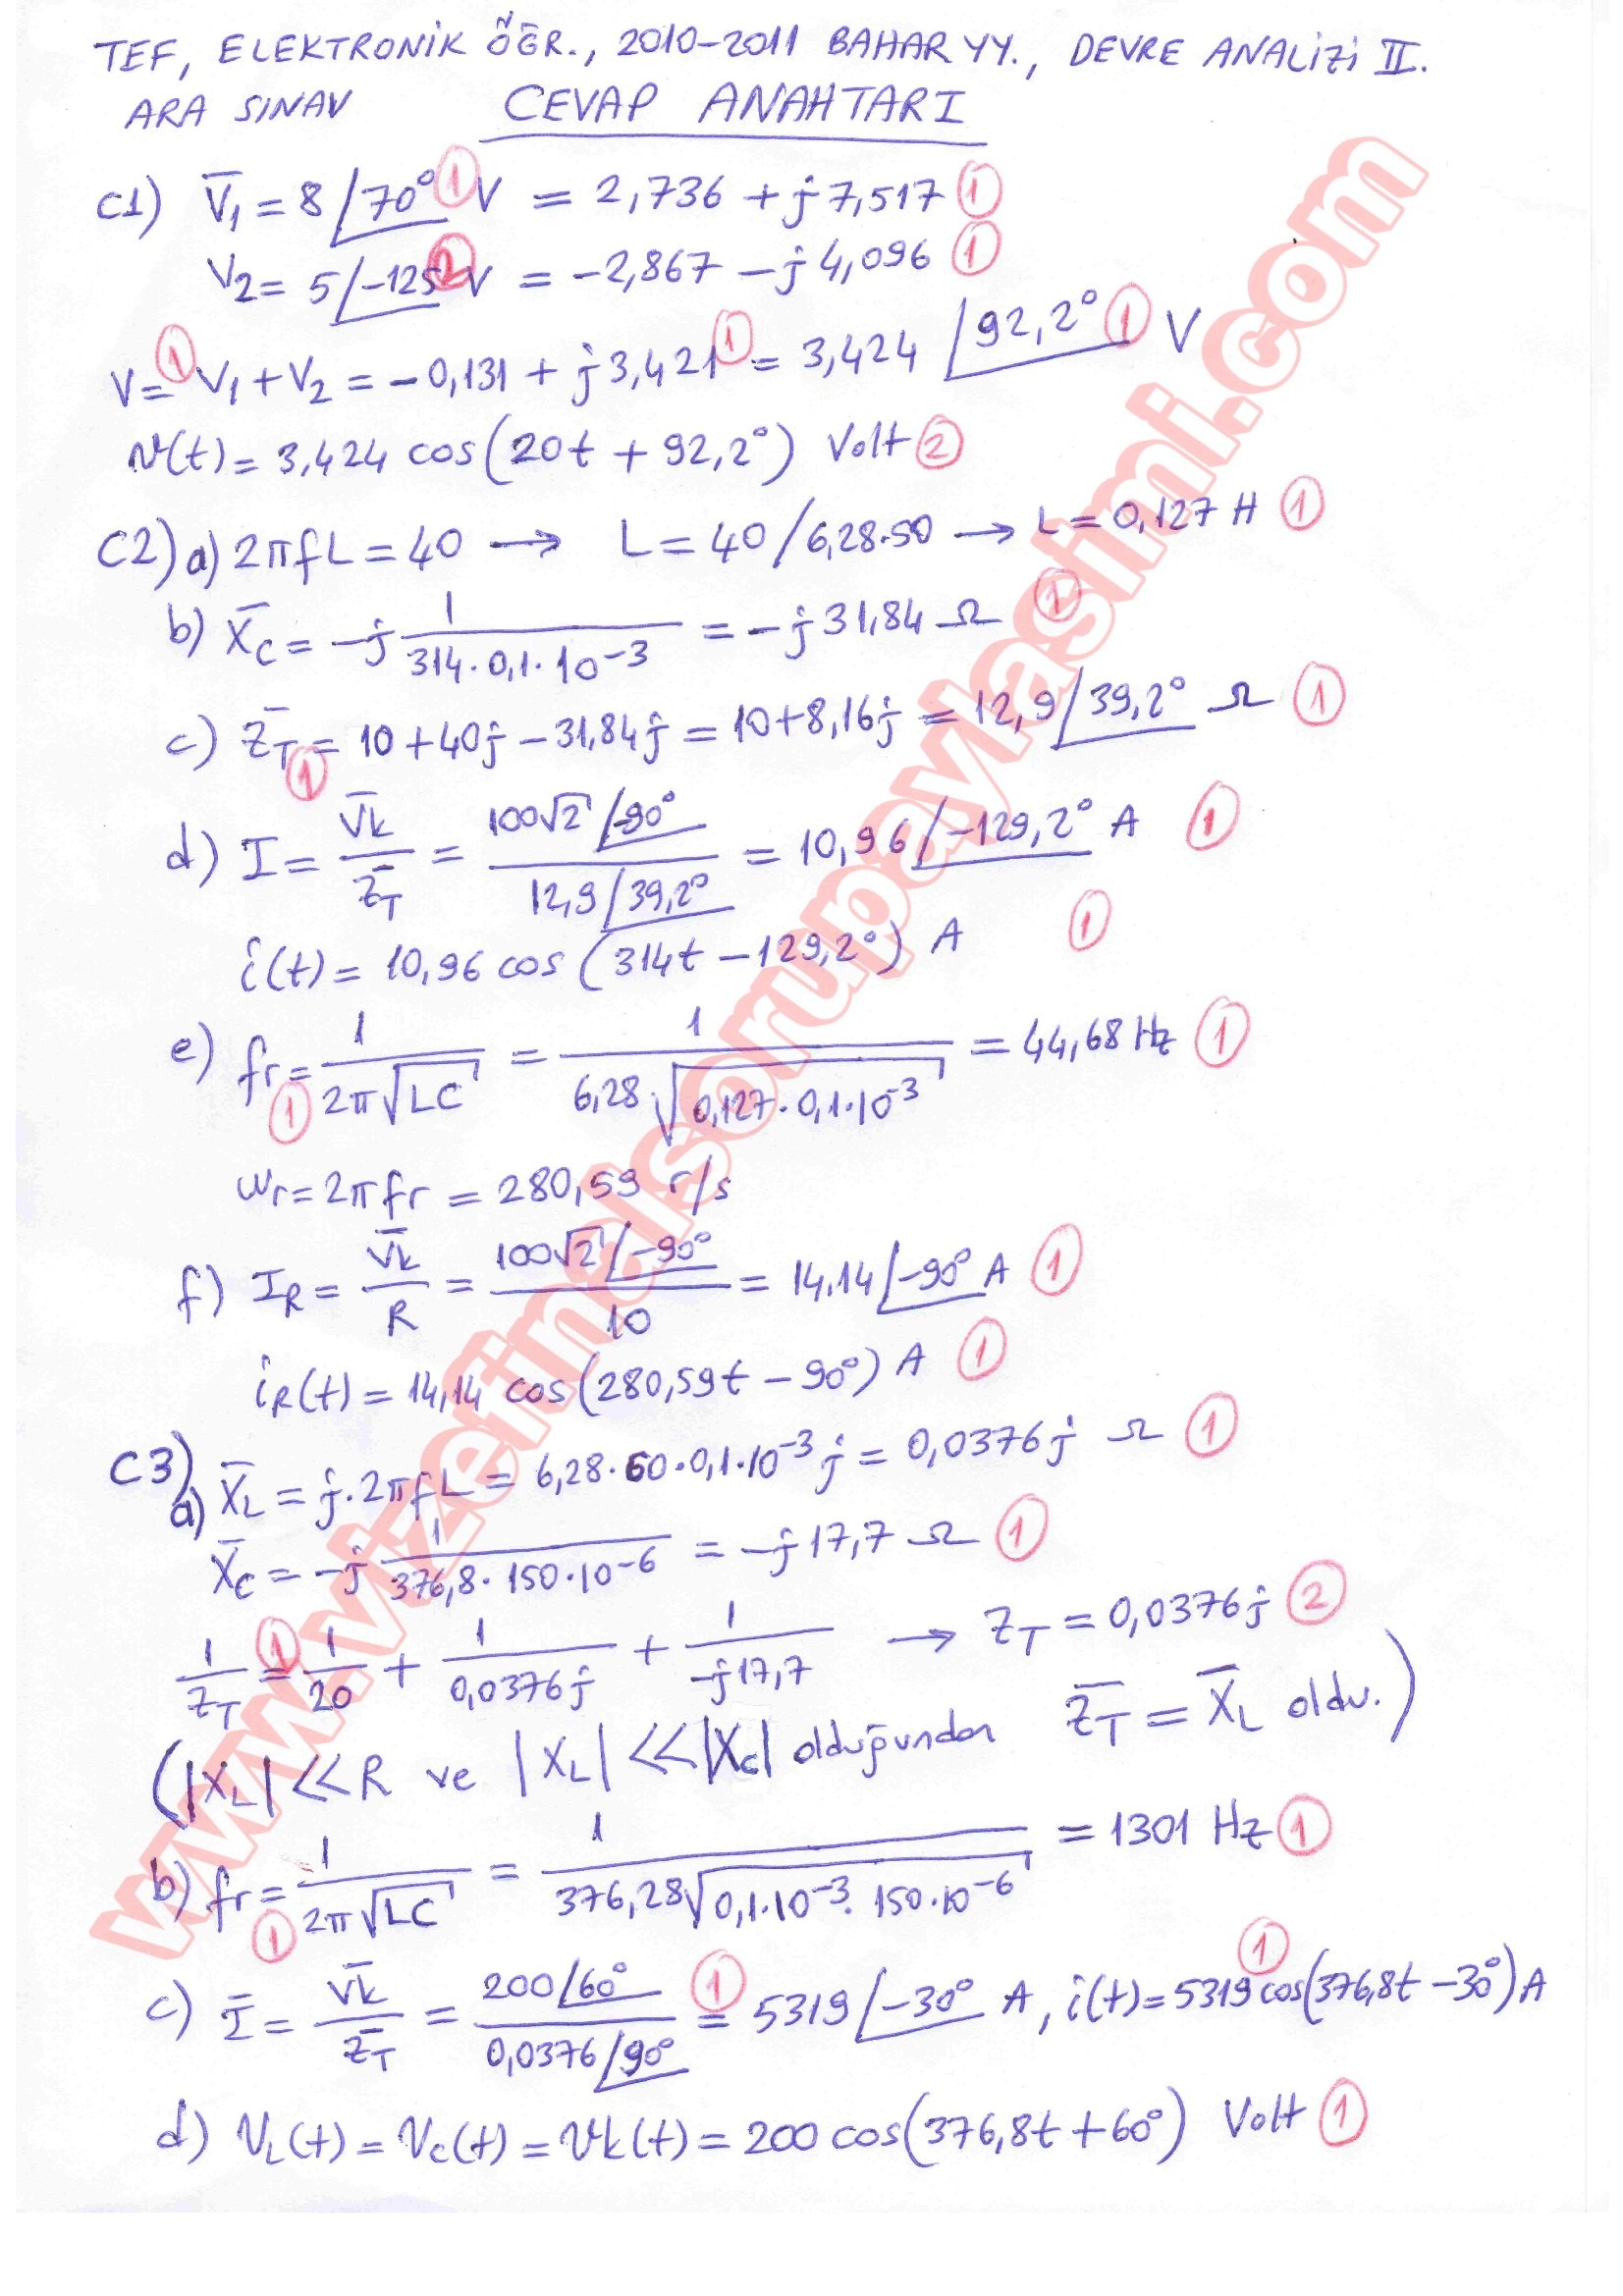 TEF, ELEKTRONİK ÖĞR., 2010-2011 BAHAR YY., DEVRE ANALİZİ II.
ARA SINAV CEVAP ANAHTARI
C1) V̅₁ = 8 /70° ① V = 2,736 + j7,517 ①
V₂ = 5 /-125 ② V = -2,867 - j4,096 ①
V = ① V₁ + V₂ = -0,131 + j3,421 ① = 3,424 /92,2° ① V
v(t) = 3,424 cos(20t + 92,2°) Volt ②
C2) a) 2πfL = 40 → L = 40/6,28.50 → L = 0,127 H ①
b) X̅c = -j 1/(314.0,1.10⁻³) = -j31,84 Ω ①
c) Z̅T = ① 10 + 40j - 31,84j = 10 + 8,16j = 12,9 /39,2° Ω ①
d) I = V̅k/Z̅T = 100√2 /-90° / 12,9 /39,2° = 10,96 /-129,2° A ①
i(t) = 10,96 cos(314t - 129,2°) A ①
e) fr = ① 1/(2π√LC) = 1/(6,28√(0,127.0,1.10⁻³)) = 44,68 Hz ①
wr = 2πfr = 280,59 r/s
f) IR = V̅k/R = 100√2 /-90° / 10 = 14.14 /-90° A ①
iR(t) = 14,14 cos(280,59t - 90°) A ①
C3)
a) X̅L = j.2πfL = 6,28.60.0,1.10⁻³j = 0,0376j Ω ①
X̅c = -j 1/(376,8.150.10⁻⁶) = -j17,7 Ω ①
1/ZT = ① 1/20 + 1/0,0376j + 1/-j17,7 → ZT = 0,0376j ②
(|XL| << R ve |XL| << |Xc| olduğundan Z̅T = X̅L oldu.)
b) fr = ① 1/(2π√LC) = 1/(376,28√(0,1.10⁻³.150.10⁻⁶)) = 1301 Hz ①
c) I̅ = V̅k/Z̅T = 200 /60° / 0,0376 /90° ① = 5319 /-30° A, i(t) = 5319 ① cos(376,8t - 30°) A
d) VL(t) = Vc(t) = Vk(t) = 200 cos(376,8t + 60°) Volt ①
www.vizefinalsorupaylasimi.com